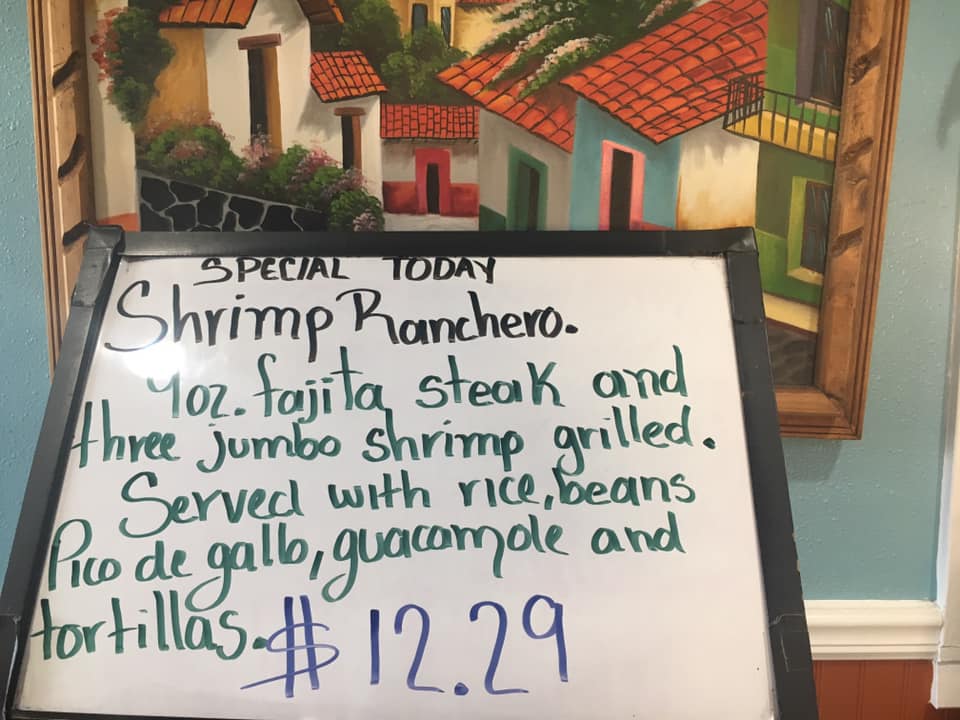 SPECIAL TODAY
Shrimp Ranchero.
9oz. fajita steak and
three jumbo shrimp grilled.
Served with rice, beans
Pico de gallo, guacamole and
tortillas. $12.29